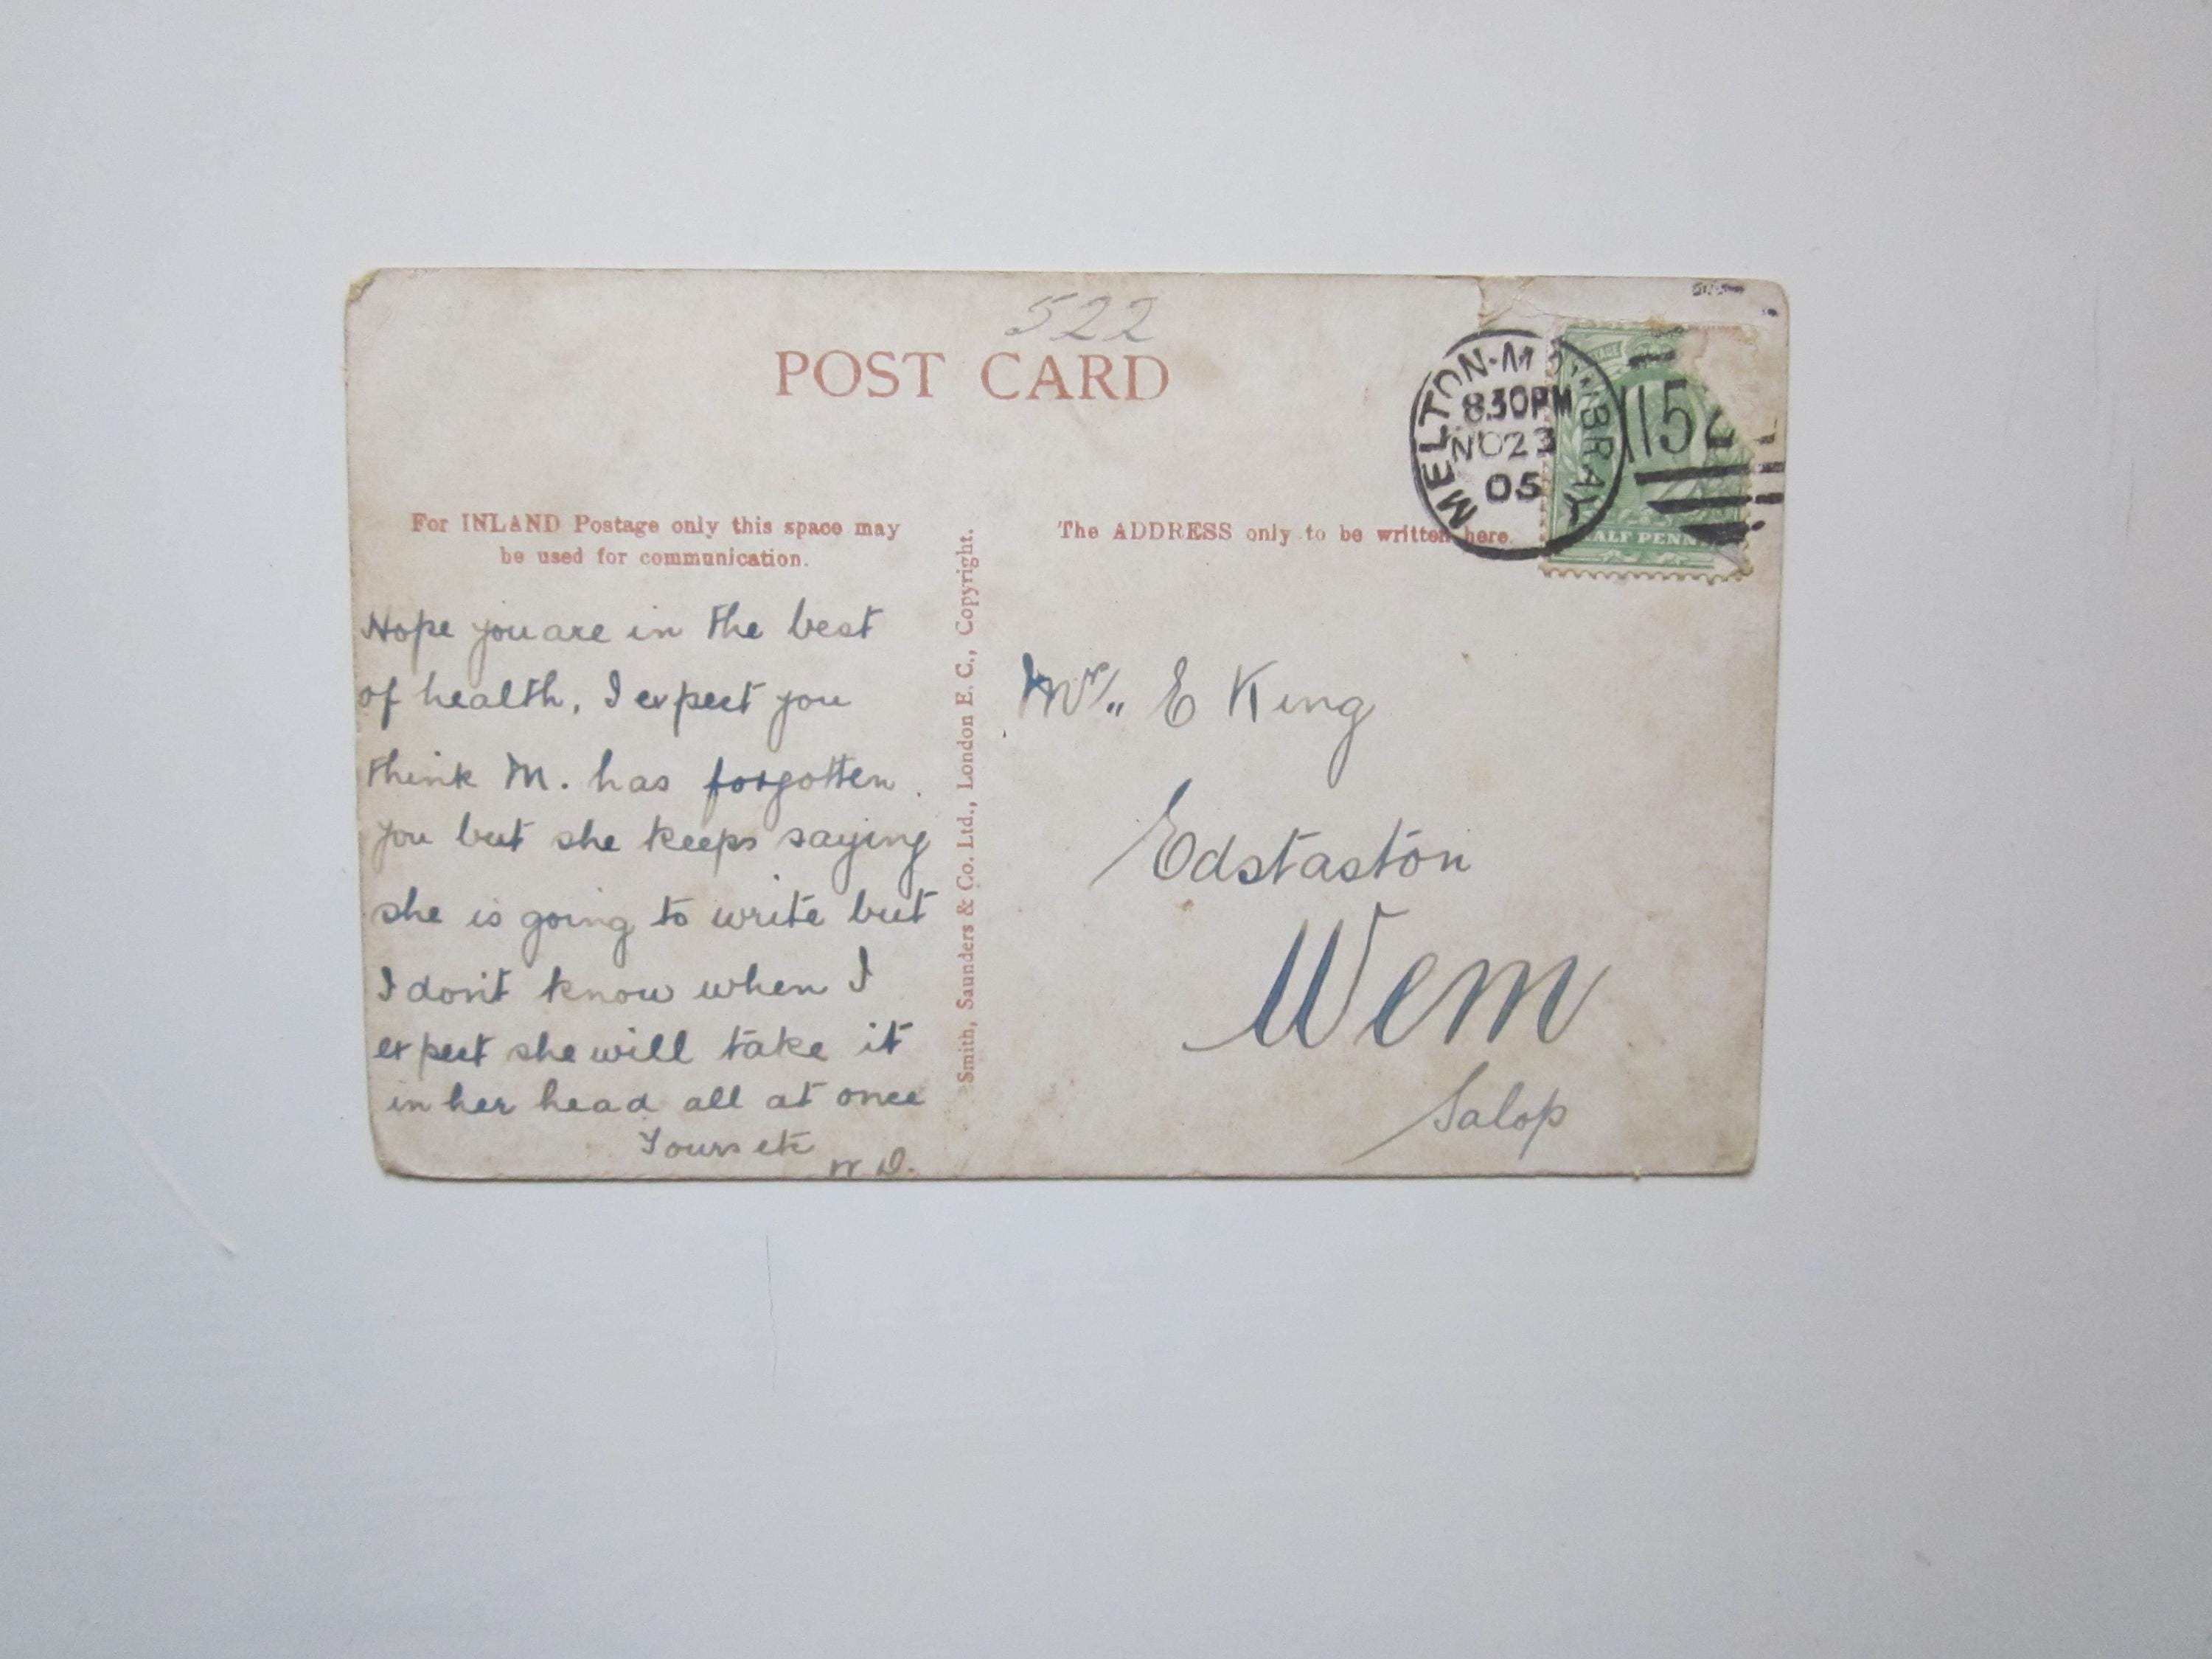 522
POST CARD
MELTON-MOWBRAY
8.30PM
NO 23
05
HALF PENNY
For INLAND Postage only this space may
be used for communication.
The ADDRESS only to be written here.
Hope you are in the best
of health, I expect you
think M. has forgotten
you but she keeps saying
she is going to write but
I don't know when I
expect she will take it
in her head all at once
Yours etc
W D.
Smith, Saunders & Co. Ltd., London E. C., Copyright.
Mr. E King
Edstaston
Wem
Salop